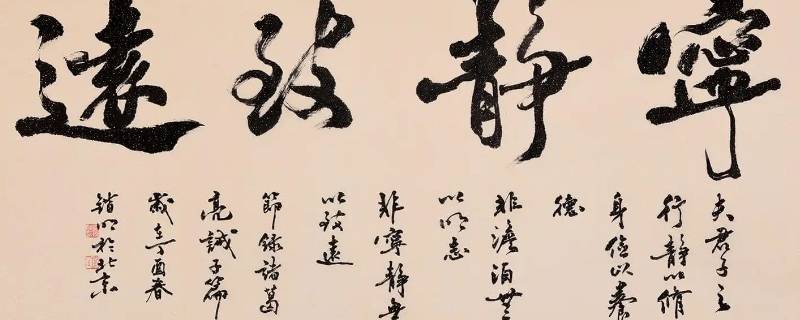 寧靜致遠
夫君子之
行靜以修
身儉以養
德
非澹泊無
以明志
非寧靜無
以致遠
節錄諸葛
亮誡子篇
歲在丁酉春
明於北京